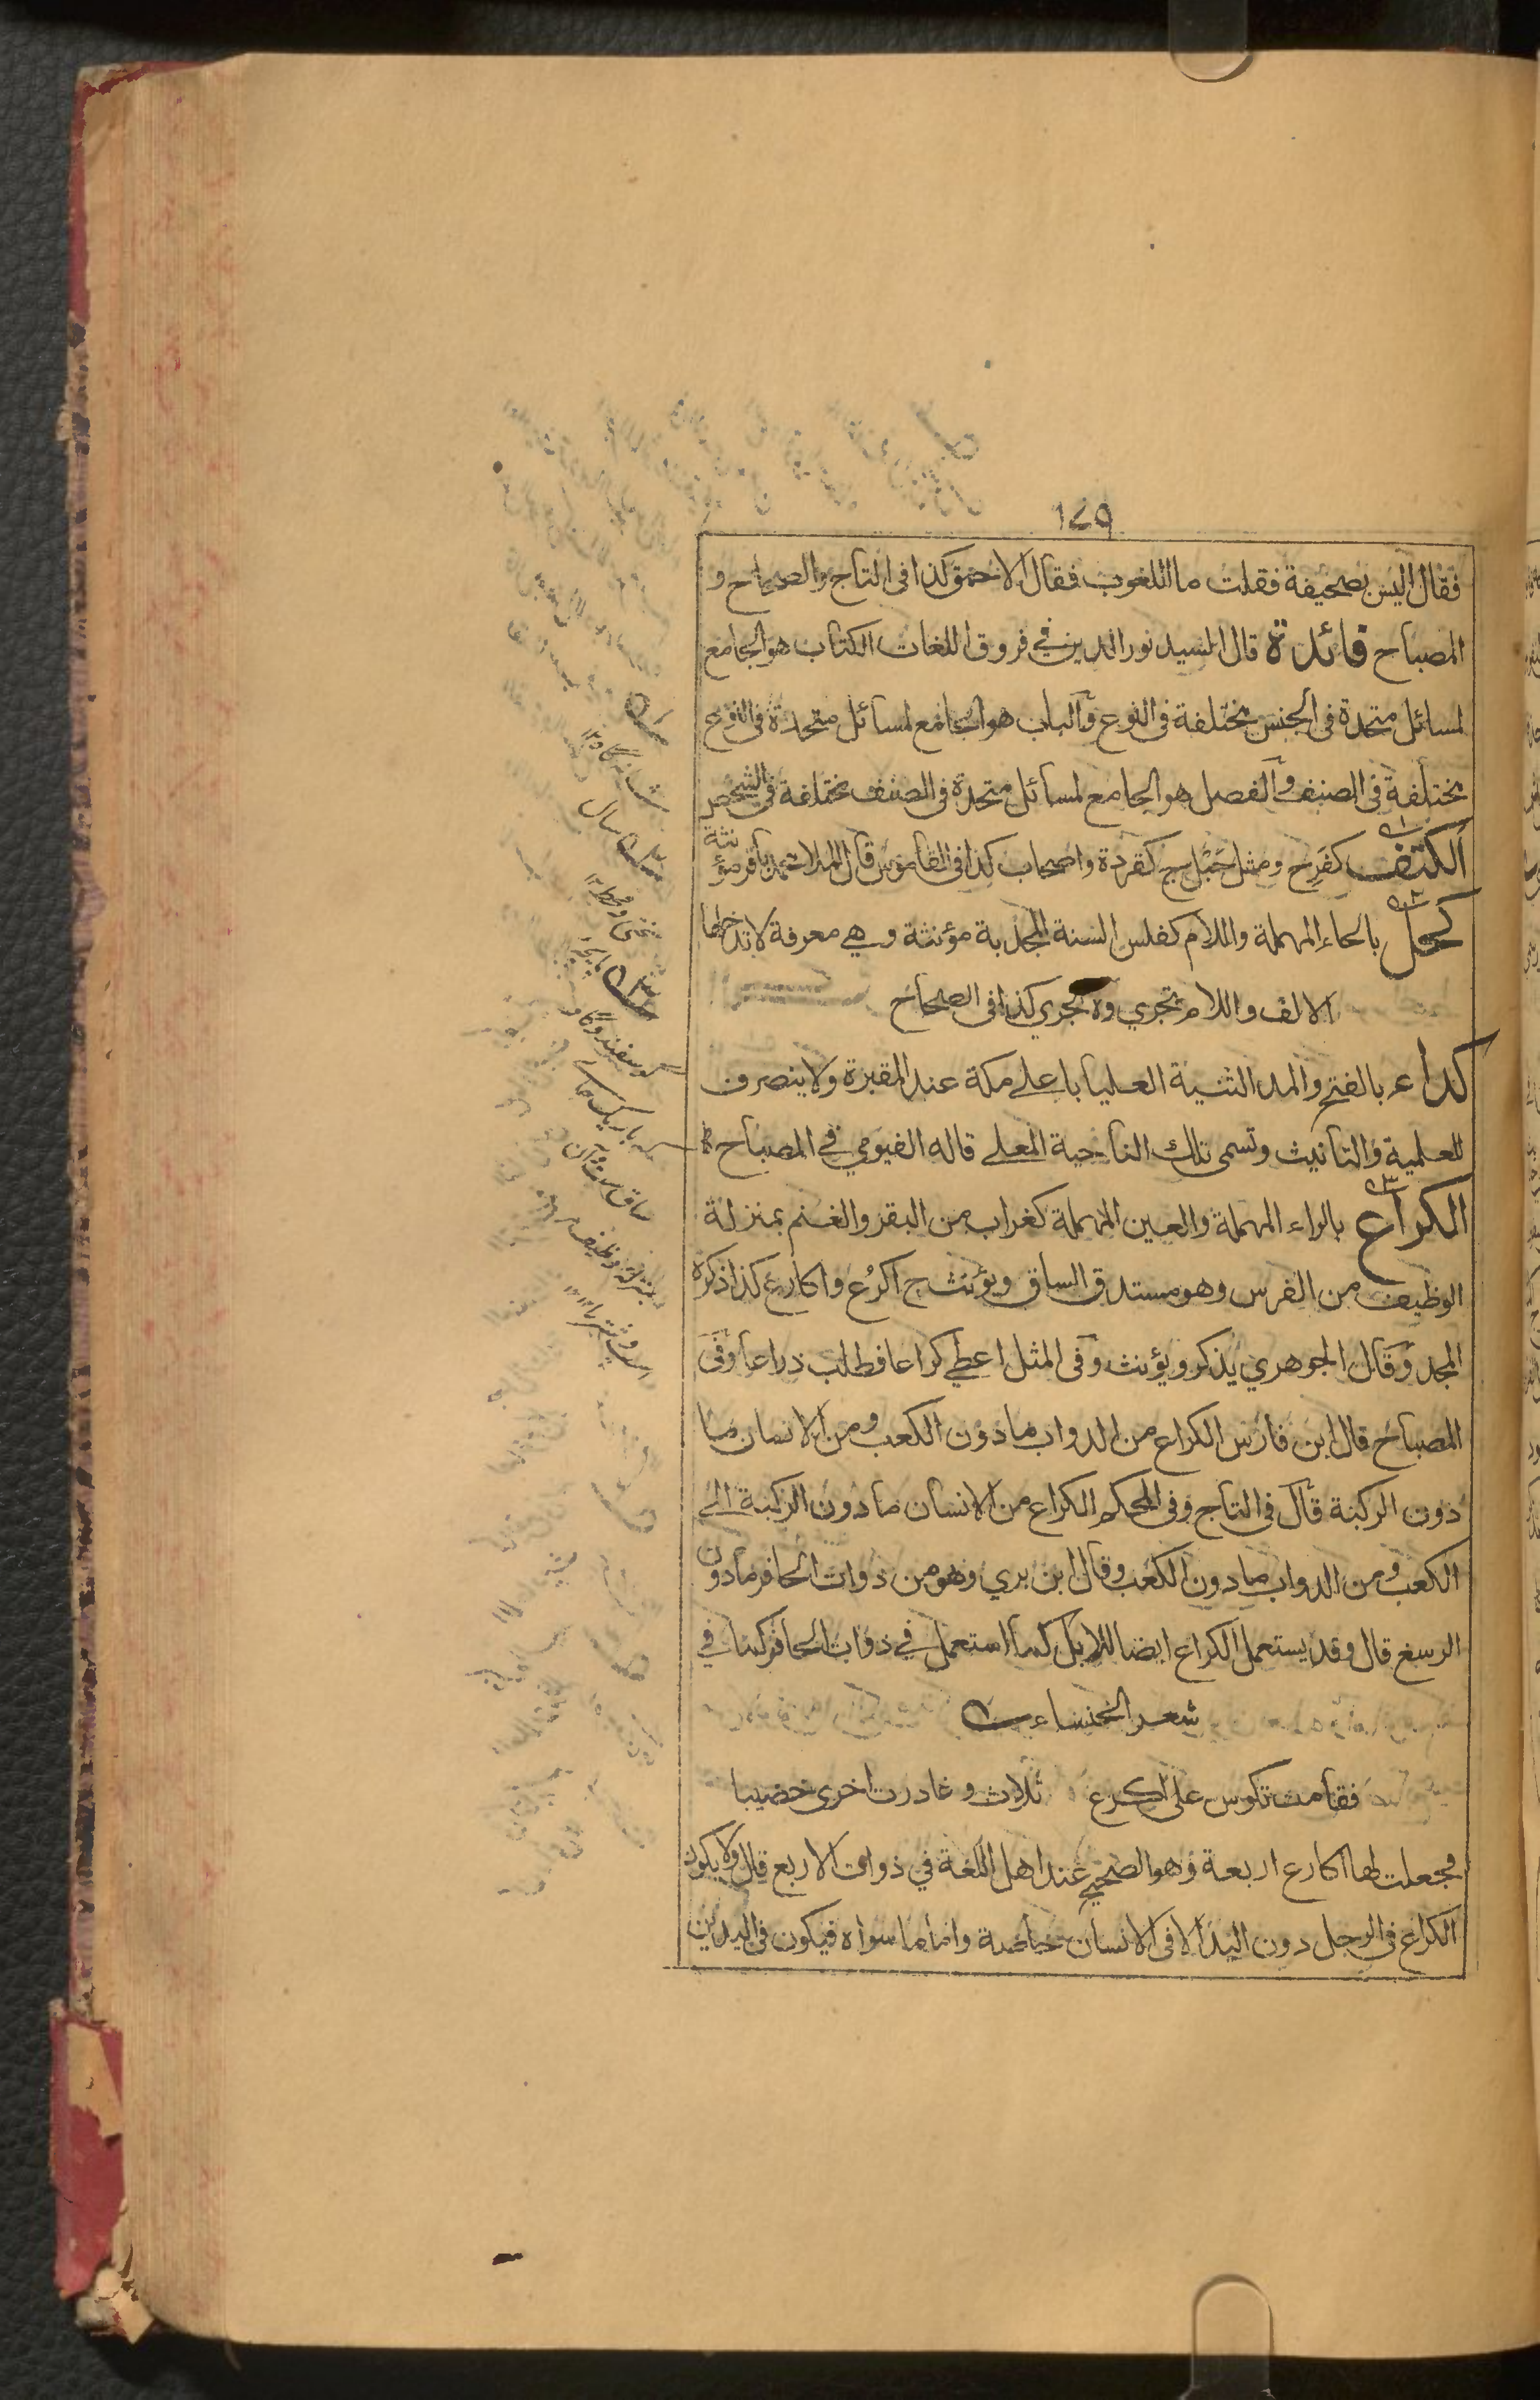 ١٧٩
فقال اليس بصحيفة فقلت ما اللغوب فقال الاحمق كذا فى التاج والصحاح و
المصباح فائدة قال السيد نور الدين في فروق اللغات الكتاب هو الجامع
لمسائل متحدة فى الجنس مختلفة فى النوع والباب هو الجامع لمسائل متحدة فى النوع
مختلفة فى الصنف والفصل هو الجامع لمسائل متحدة فى الصنف مختلفة فى الشخص
الكتف كفرح ومثل حبل ج كقردة واصحاب كذا فى القاموس قال الملا محمد باقر مؤنثة
كحل بالحاء المهملة واللام كفلس السنة المجدبة مؤنثة وهي معرفة لا تدخلها
الالف واللام تجرى ولا تجرى كذا فى الصحاح
كداء بالفتح والمد الثنية العليا باعلے مكة عند المقبرة ولا ينصرف
للعلمية والتانيث وتسمى تلك الناحية المعلے قاله الفيومي في المصباح
الكراع بالراء المهملة والعين المهملة كغراب من البقر والغنم بمنزلة
الوظيف من الفرس وهو مستدق الساق ويؤنث ج اكرُع واكارع كذا ذكره
المجد وقال الجوهري يذكر ويؤنث وفى المثل اعطي كراعا فطلب ذراعا وفى
المصباح قال ابن فارس الكراع من الدواب ما دون الكعب ومن الانسان ما
دون الركبة قال فى التاج وفى المحكم الكراع من الانسان ما دون الركبة الى
الكعب ومن الدواب ما دون الكعب وقال ابن بري وهو من ذوات الحافر ما دون
الرسغ قال وقد يستعمل الكراع ايضا للابل كما استعمل في ذوات الحافر كما في
شعر الخنساء
فقامت تكوس على اكرع ثلاث وغادرت اخرى خضيبا
فجعلت لها اكارع اربعة وهو الصحيح عند اهل اللغة في ذوات الاربع قال ولا يكون
الكراع فى الرجل دون اليد الا فى الانسان خاصة واما ما سواه فيكون فى اليدين